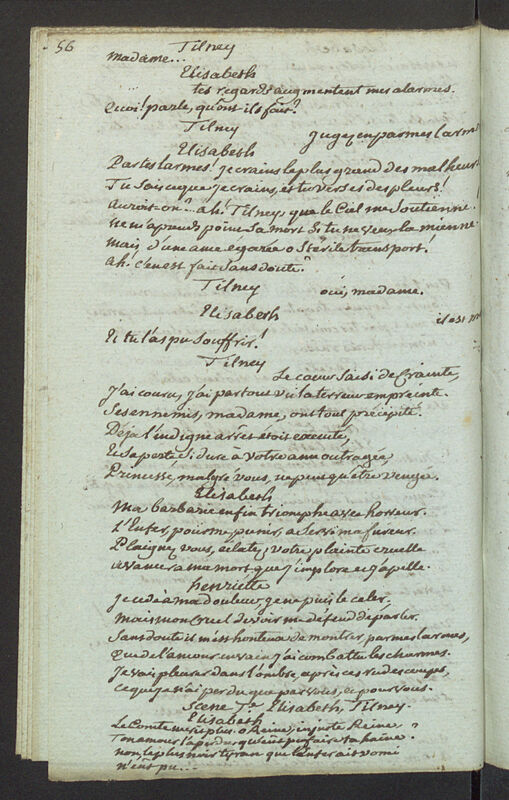 56
Tilney
Madame...
Elisabeth
tes regards augmentent mes alarmes.
Quoi! parle, qu'ont-ils fait?
Tilney
jugez en par mes larmes
Elisabeth
Par tes larmes! je crains le plus grand des malheurs
Tu sais ce que je crains, et tu verses des pleurs!
auroit-on... ah! Tilney, que le Ciel me soutienne.
ne m'aprends point sa mort si tu ne veux la mienne.
Mais d'une ame egarée o Stérile transport!
ah! c'en est fait sans doute?
Tilney
oui, madame.
Elisabeth
il est mort
Et tu l'as pu souffrir!
Tilney
Le coeur saisi de Crainte,
J'ai couru, j'ai partout vu la terreur empreinte.
Ses ennemis, madame, ont tout précipité.
Déja l'indigne arrêt étoit executé,
Et sa perte si dure à votre ame outragée,
Princesse, malgré vous, ne peut qu'être vengée.
Elisabeth
Ma barbarie enfin triomphe avec horreur.
l'Enfer, pour me punir, a servi ma fureur.
Plaignez vous, eclatez; votre plainte cruelle
avancera ma mort que j'implore et j'apelle.
henriette
je cede à ma douleur, je ne puis le celer.
Mais mon Cruel devoir me défend de parler.
Sans doute il m'est honteux de montrer, par mes larmes,
Que de l'amour en vain j'ai combattu les charmes.
Je vais pleurer dans l'ombre, après ces rudes coups,
Ce que je n'ai perdu que par vous, et pour vous.
Scene 7e Elisabeth, Tilney.
Elisabeth
Le Comte ne vit plus. o Reine, injuste Reine!
Ton amour l'a perdu, qu'eut pu faire ta haine?
non, le plus noir tyran que l'enfer ait vomi
n'eût pu...